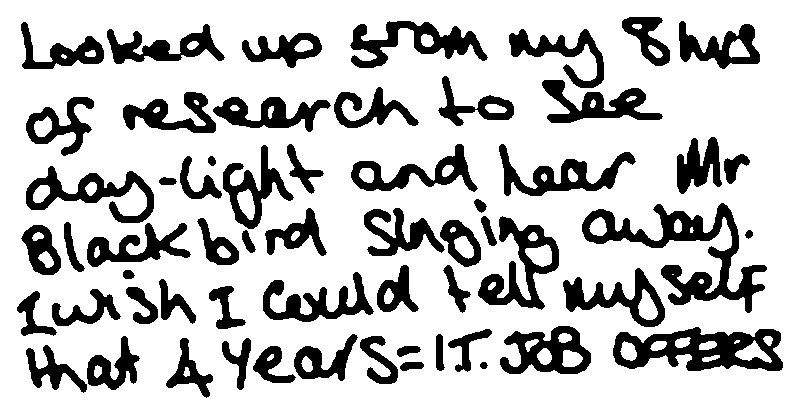 Looked up from my 8hrs
of research to see
day-light and hear Mr
Blackbird singing away.
I wish I could tell myself
that 4 years=I.T. JOB OFFERS